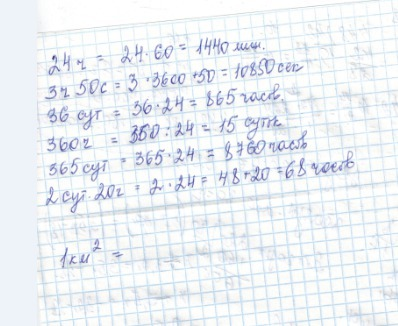 24 ч = 24·60 = 1440 мин.
3ч 50с = 3·3600+50 = 10850 сек
36 сут = 36·24 = 865 часов.
360ч = 360:24 = 15 суток
365 сут = 365·24 = 8760 часов
2 сут. 20ч = 2·24 = 48+20 = 68 часов
1км² =